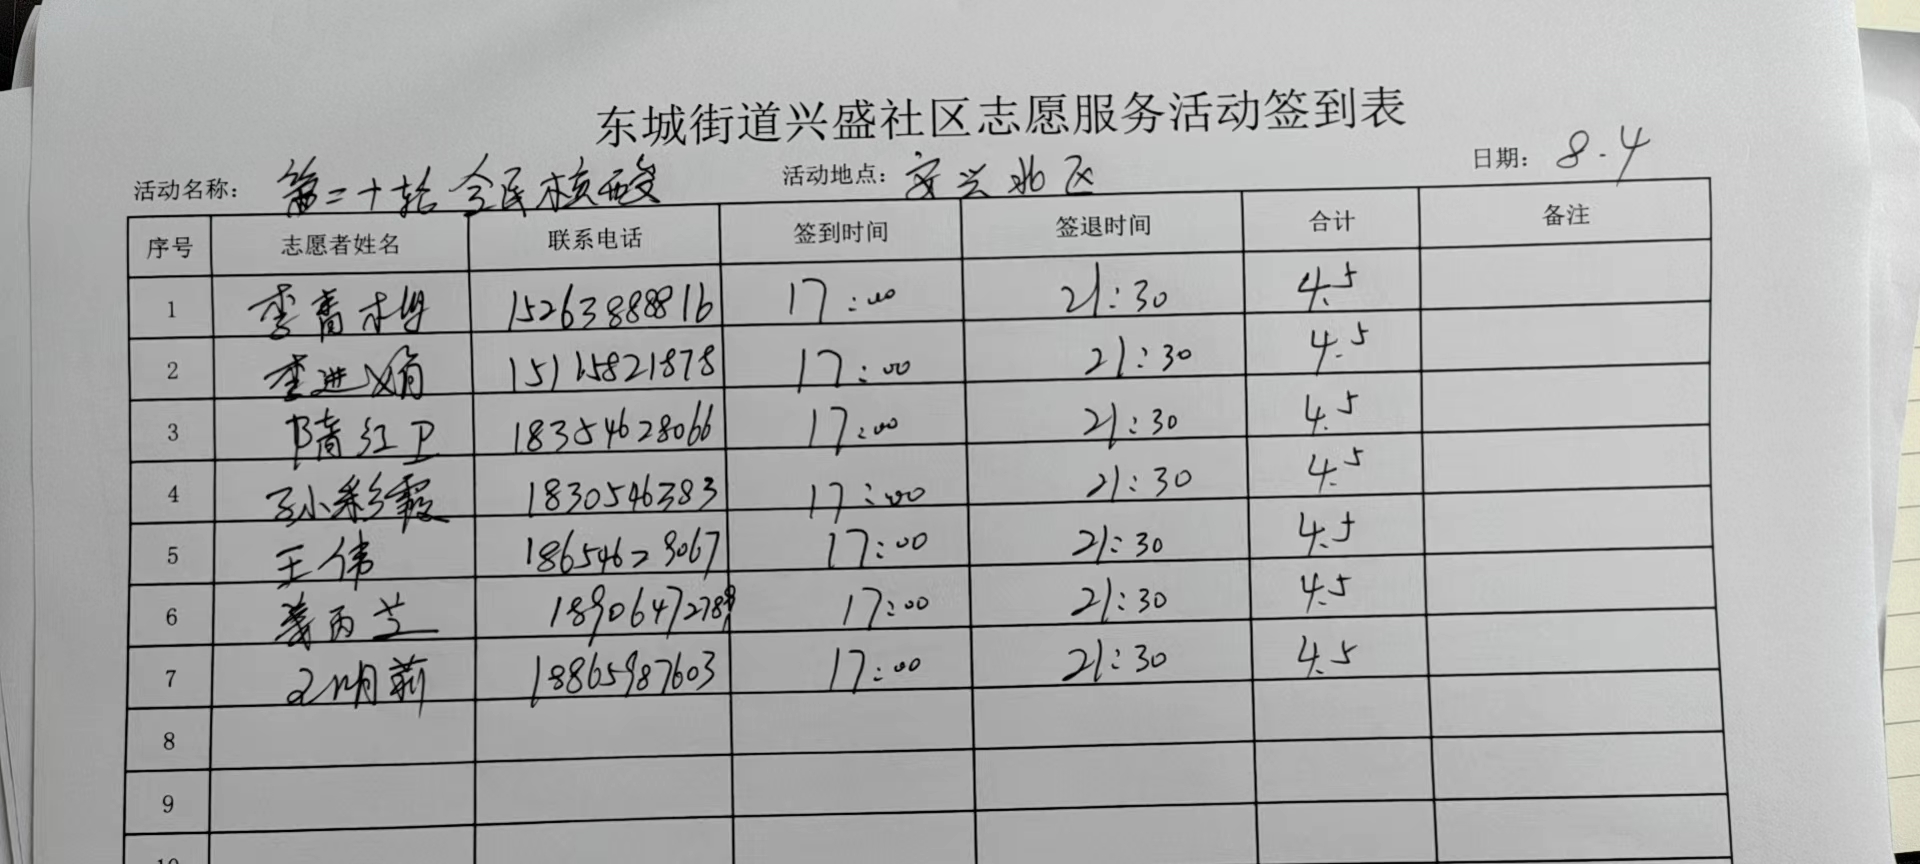 东城街道兴盛社区志愿服务活动签到表
活动名称: 第二十轮全民核酸 活动地点: 安兴北区 日期: 8.4
序号 志愿者姓名 联系电话 签到时间 签退时间 合计 备注
1 李 15263888816 17:00 21:30 4.5
2 李进娟 15115821878 17:00 21:30 4.5
3 隋红卫 18354628066 17:00 21:30 4.5
4 孙彩霞 1830546383 17:00 21:30 4.5
5 王伟 17:00 21:30 4.5
6 姜丙兰 17:00 21:30 4.5
7 18865987603 17:00 21:30 4.5
8
9
10